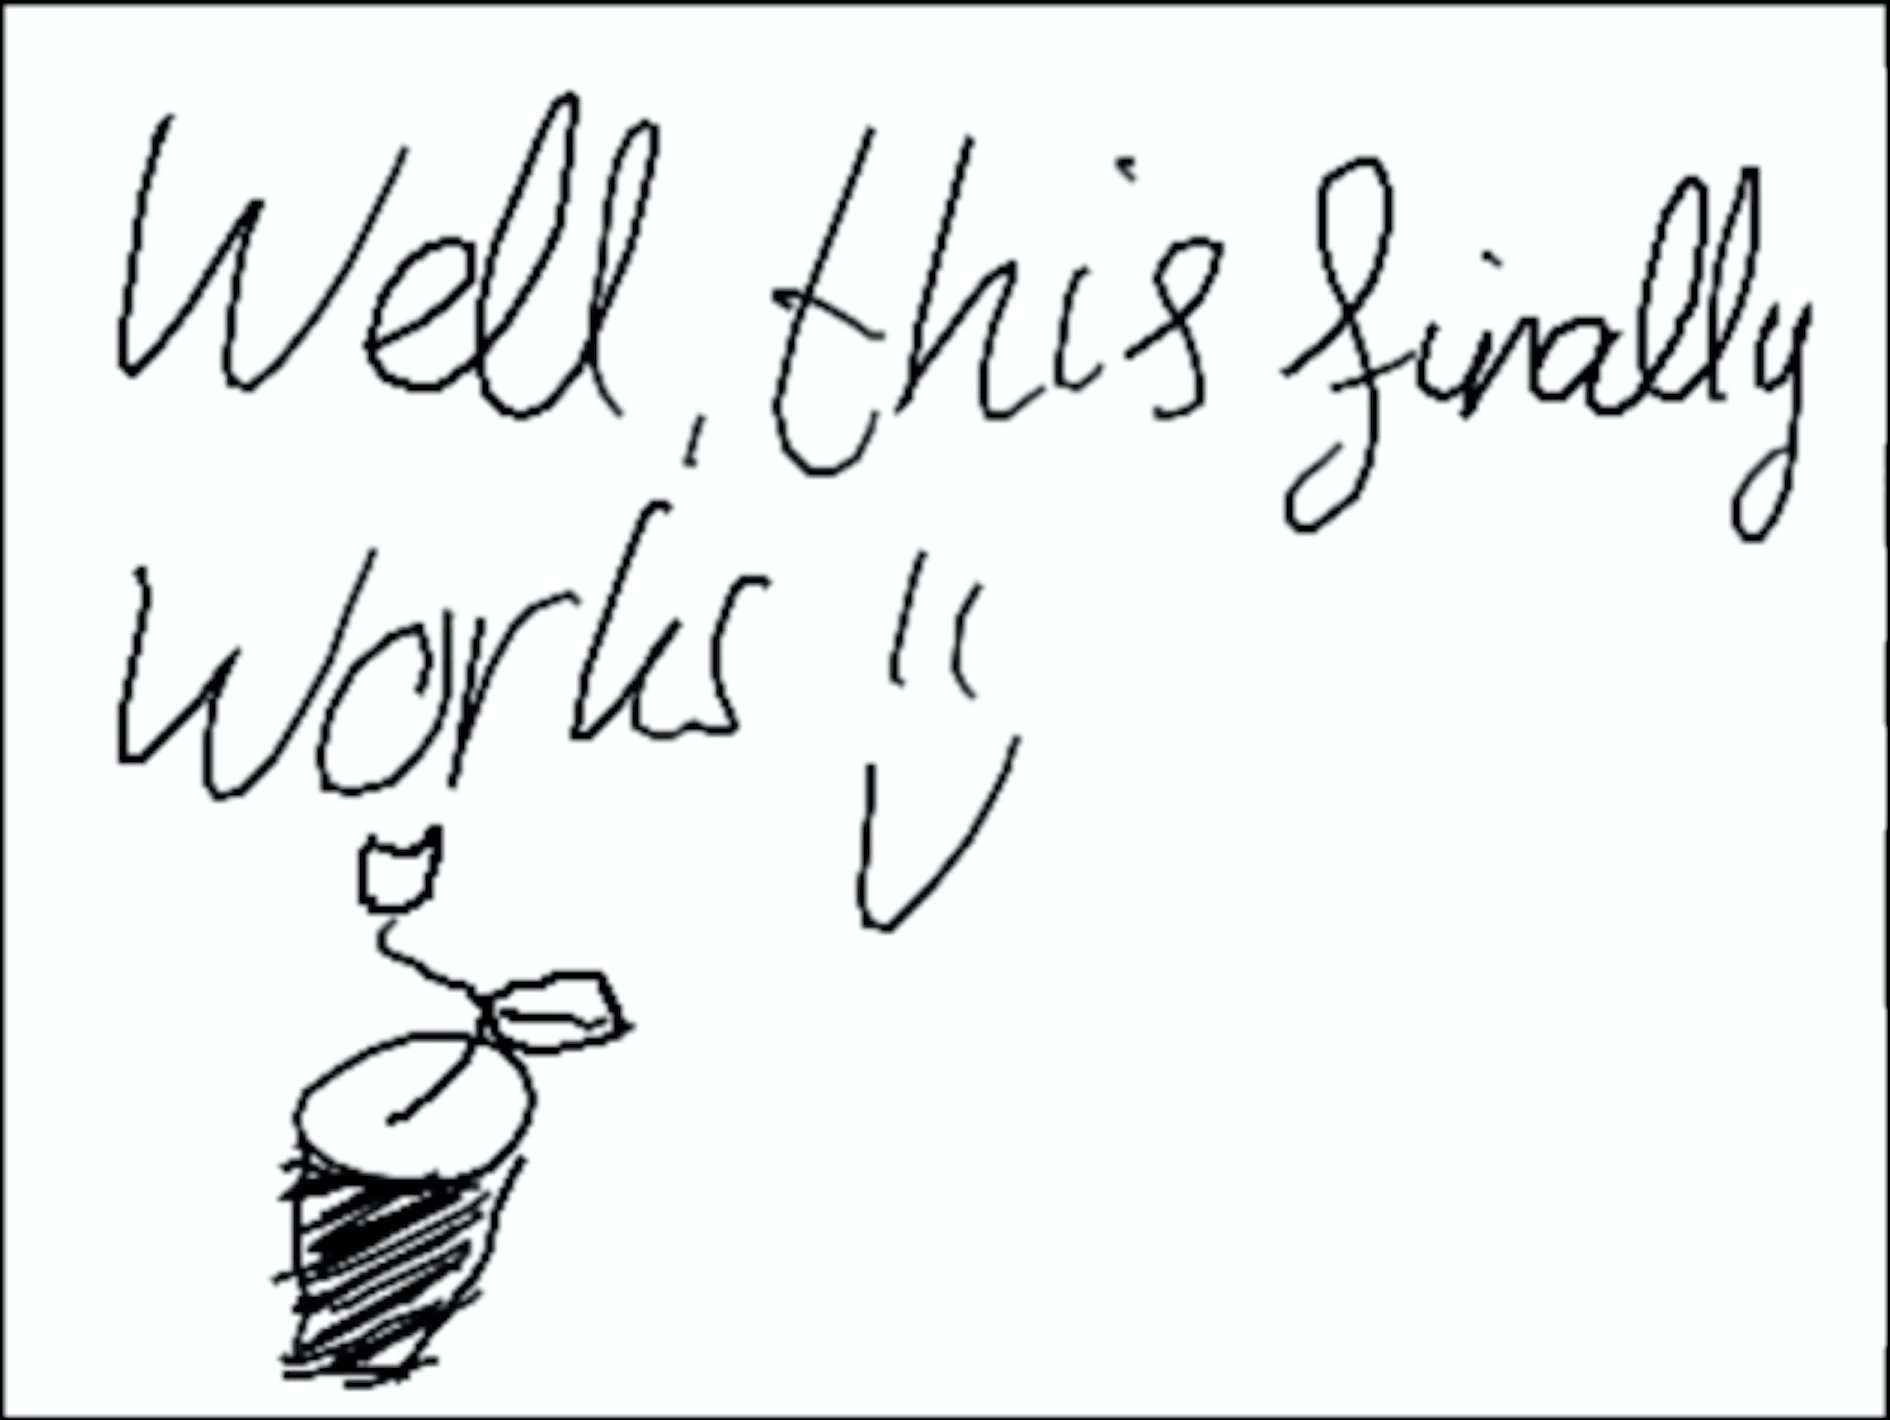 Well, this finally
works